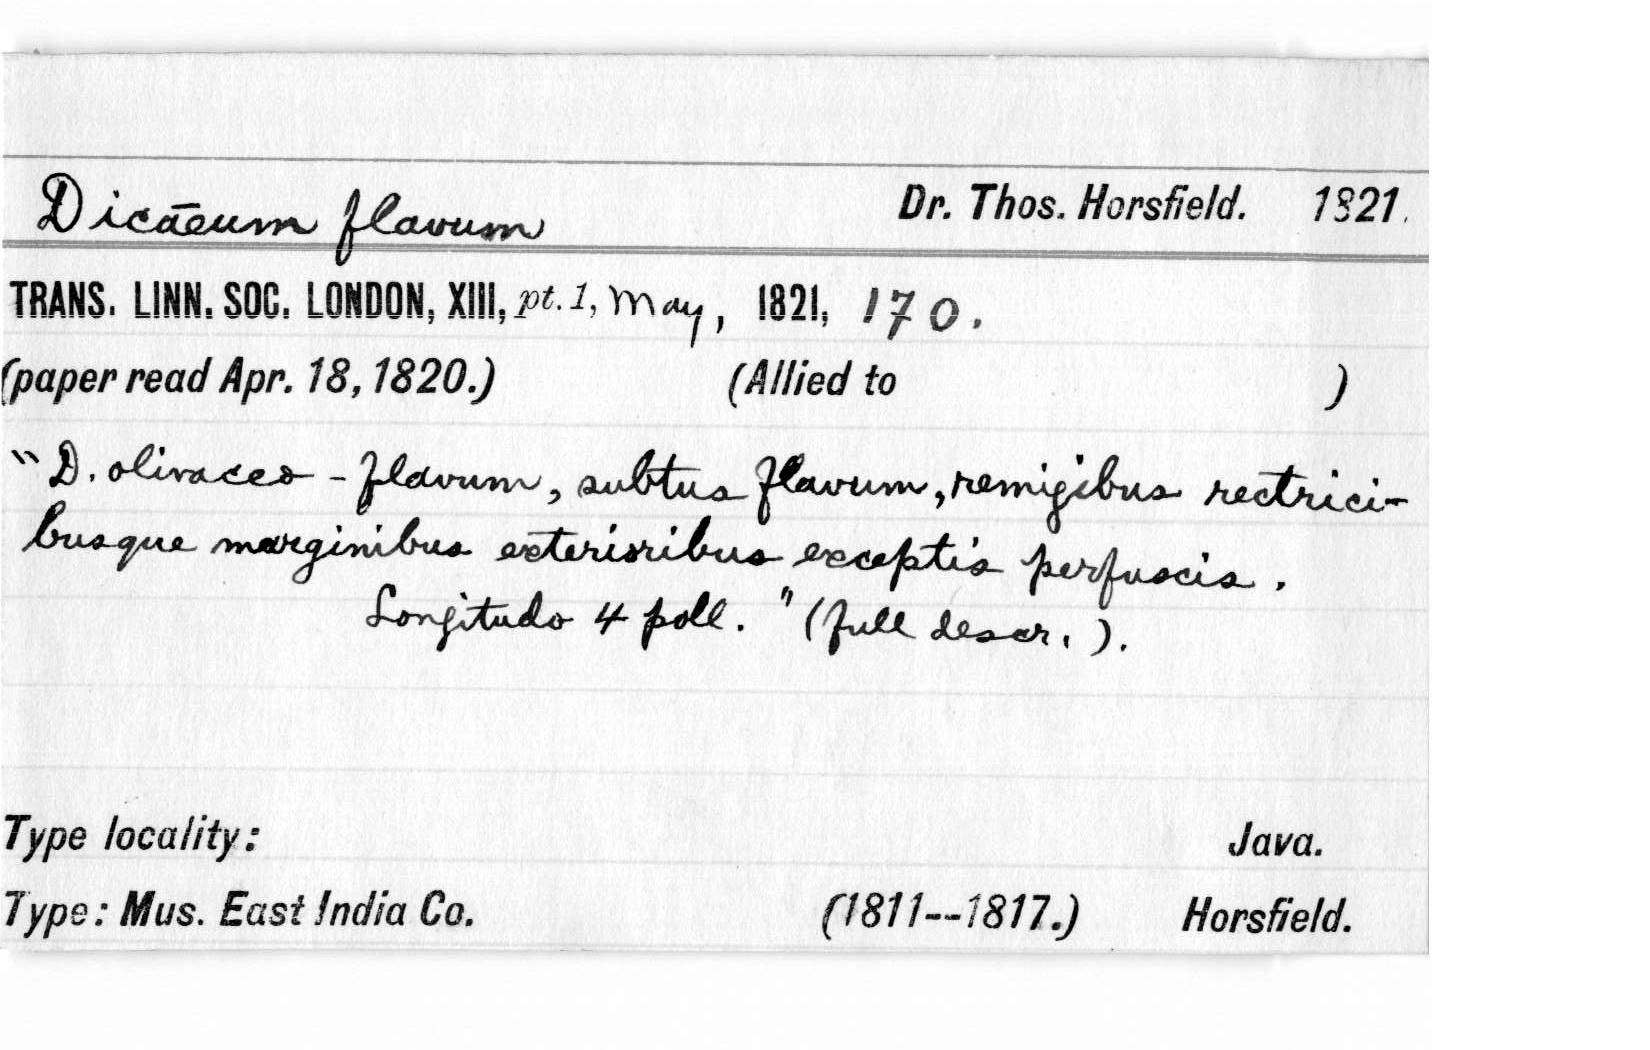 Dicāeum flavum Dr. Thos. Horsfield. 1821.
TRANS. LINN. SOC. LONDON, XIII, pt. 1, May, 1821, 170.
(paper read Apr. 18, 1820.) (Allied to )
"D. olivaceo-flavum, subtus flavum, remigibus rectrici-
busque marginibus exterioribus exceptis perfuscis.
Longitudo 4 poll." (full descr.).
Type locality: Java.
Type: Mus. East India Co. (1811--1817.) Horsfield.